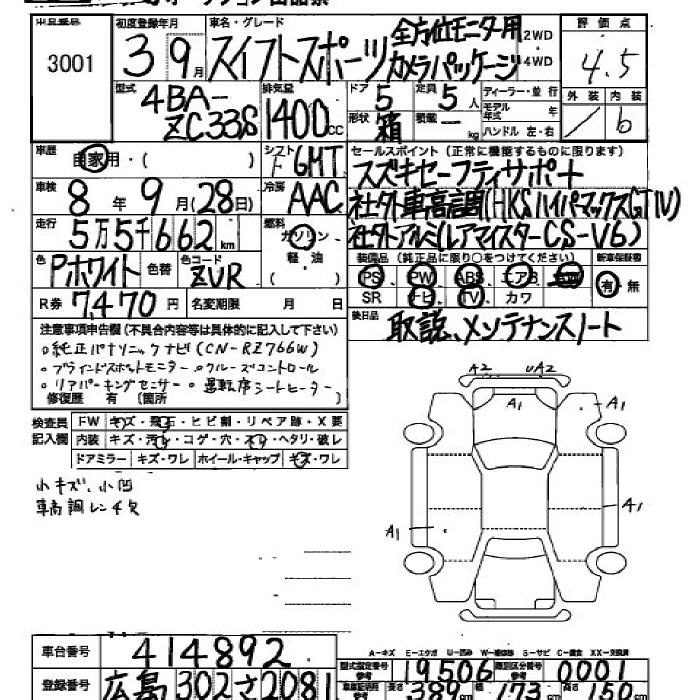 3001
初度登録年月 車名・グレード 評価点
3 9月 スイフトスポーツ 全方位モニター用カメラパッケージ 2WD 4WD 4.5
型式 排気量 ドア 定員 ディーラー・並行 外装 内装
4BA-ZC33S 1400cc 5 5人 モデル年式 年 / b
形状 箱 積載 ー kg ハンドル 左・右
車歴 自家用・( ) シフト F6MT セールスポイント(正常に機能するものに限ります)
スズキセーフティサポート
車検 8年9月(28日) 冷房 AAC 社外車高調(HKSハイパマックスGTⅣ)
走行 5万5千662km 燃料 ガソリン・軽油( ) 社外アルミ(レアマイスターCS-V6)
色 Pホワイト 色替 色コード ZVR 装備品(純正品に限り○をつけてください) 新車保証書
PS PW ABS エアB AW 有・無
R券 7,470円 名変期限 月 日 SR ナビ TV カワ
後日品 取説、メンテナンスノート
注意事項申告欄(不具合内容等は具体的に記入して下さい)
○純正パナソニックナビ(CN-RZ766W)
○ブラインドスポットモニター ○クルーズコントロール
○リアパーキングセンサー ○運転席シートヒーター
修復歴 有 (箇所
検査員記入欄 FW キズ・飛石・ヒビ割・リペア跡・X要
内装 キズ・汚れ・コゲ・穴・スレ・ヘタリ・破レ
ドアミラー キズ・ワレ ホイール・キャップ キズ・ワレ
小キズ、小凹
車高調レンチ欠
A2 UA2
A1 A1
A1
A1
A-キズ E-エクボ U-凹み W-補修跡 S-サビ C-腐食 XX-交換済
車台番号 414892 型式指定番号 参考 19506 類別区分番号 参考 0001
登録番号 広島 302 さ 2081 長さ 389cm 173cm 高さ 150cm